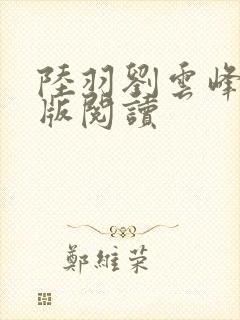 陸羽劉雲峰
版閱讀
鄭維荣